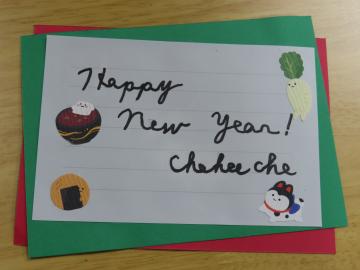 Happy
New Year!
Chekeeche